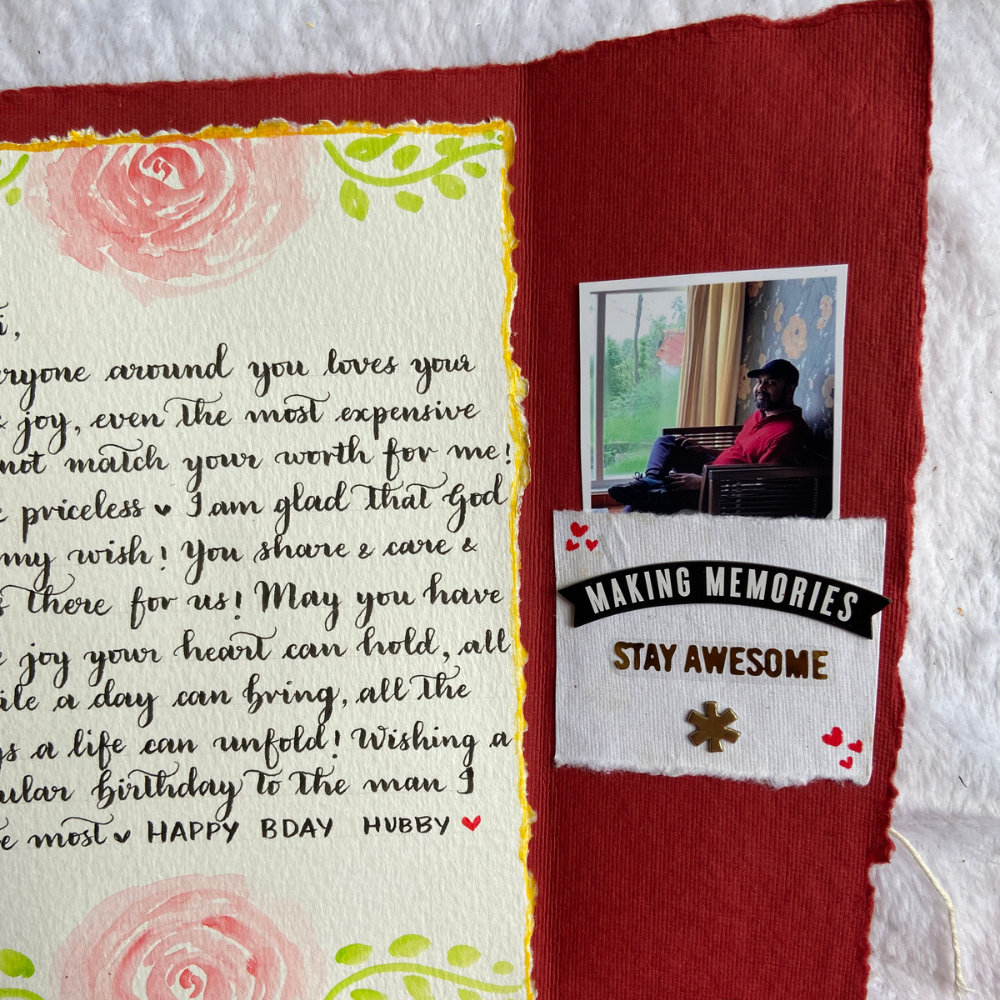 i,
ryone around you loves your
& joy, even the most expensive
not match your worth for me!
e priceless ♥ I am glad that God
my wish! You share & care &
s there for us! May you have
e joy your heart can hold, all
ile a day can bring, all the
gs a life can unfold! Wishing a
ular birthday to the man I
e most ♥ HAPPY BDAY HUBBY ♥
MAKING MEMORIES
STAY AWESOME